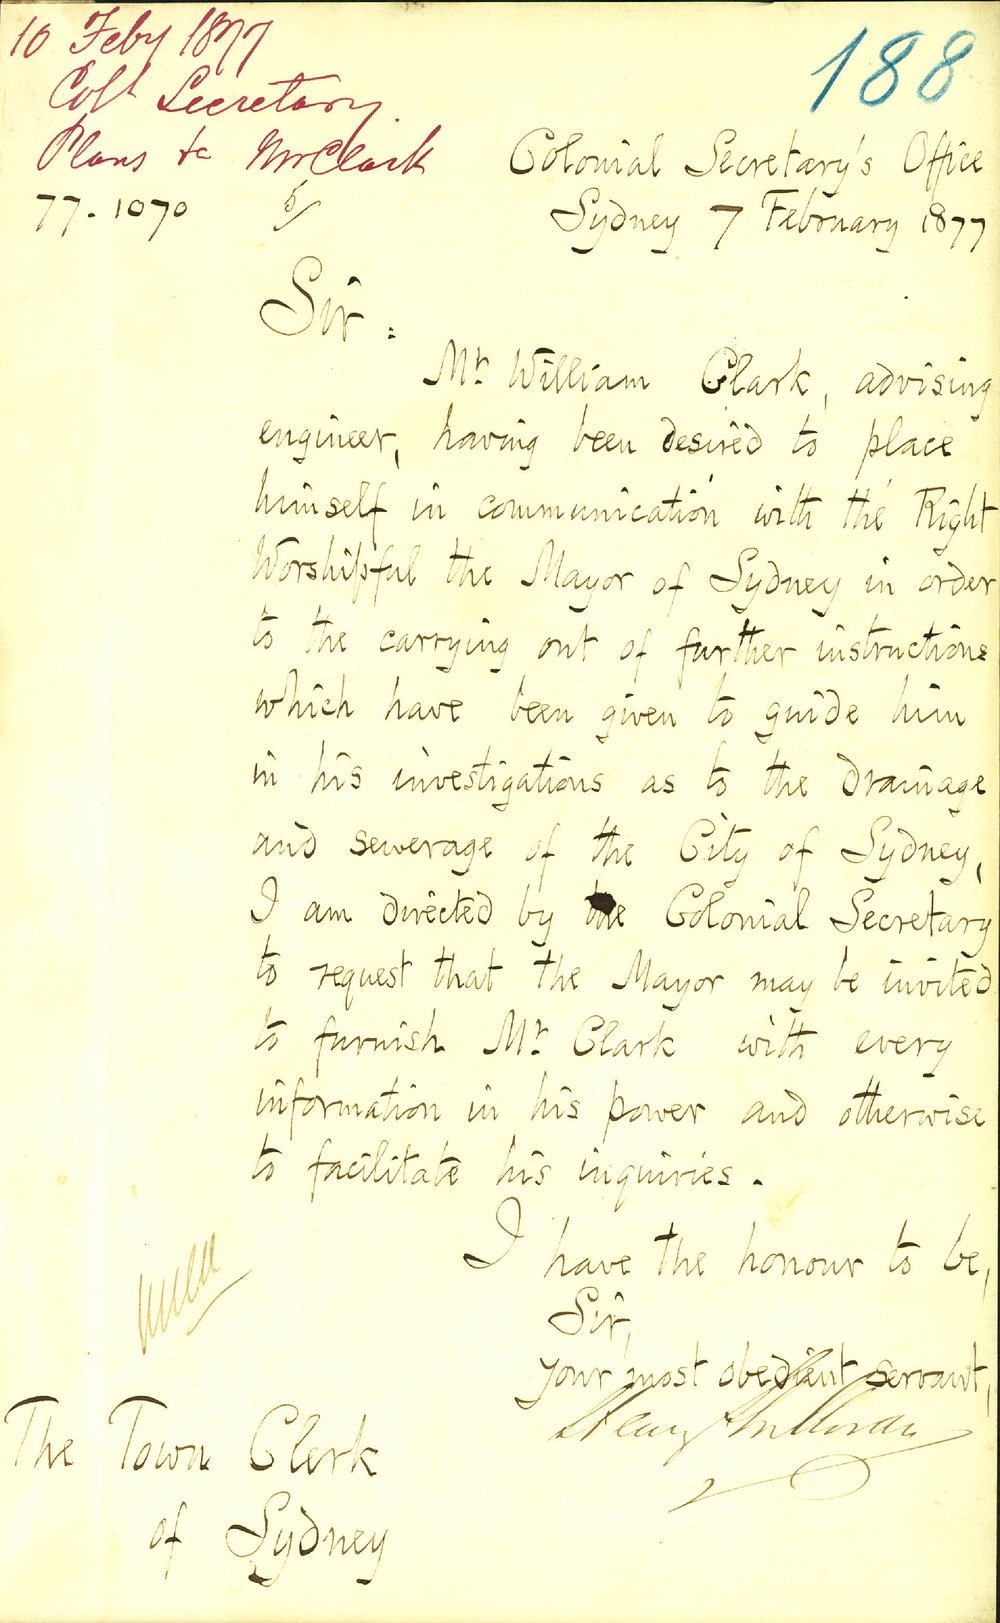 10 Feby 1877
Coll Secretary
Plans to Mr Clark
77. 1070
188
Colonial Secretary's Office
Sydney 7 February 1877
Sir:
Mr. William Clark, advising
engineer, having been desired to place
himself in communication with the Right
Worshipful the Mayor of Sydney in order
to the carrying out of further instructions
which have been given to guide him
in his investigations as to the drainage
and sewerage of the City of Sydney,
I am directed by the Colonial Secretary
to request that the Mayor may be invited
to furnish Mr. Clark with every
information in his power and otherwise
to facilitate his inquiries.
I have the honour to be,
Sir,
your most obedient servant,
Henry Halloran
The Town Clerk
of Sydney